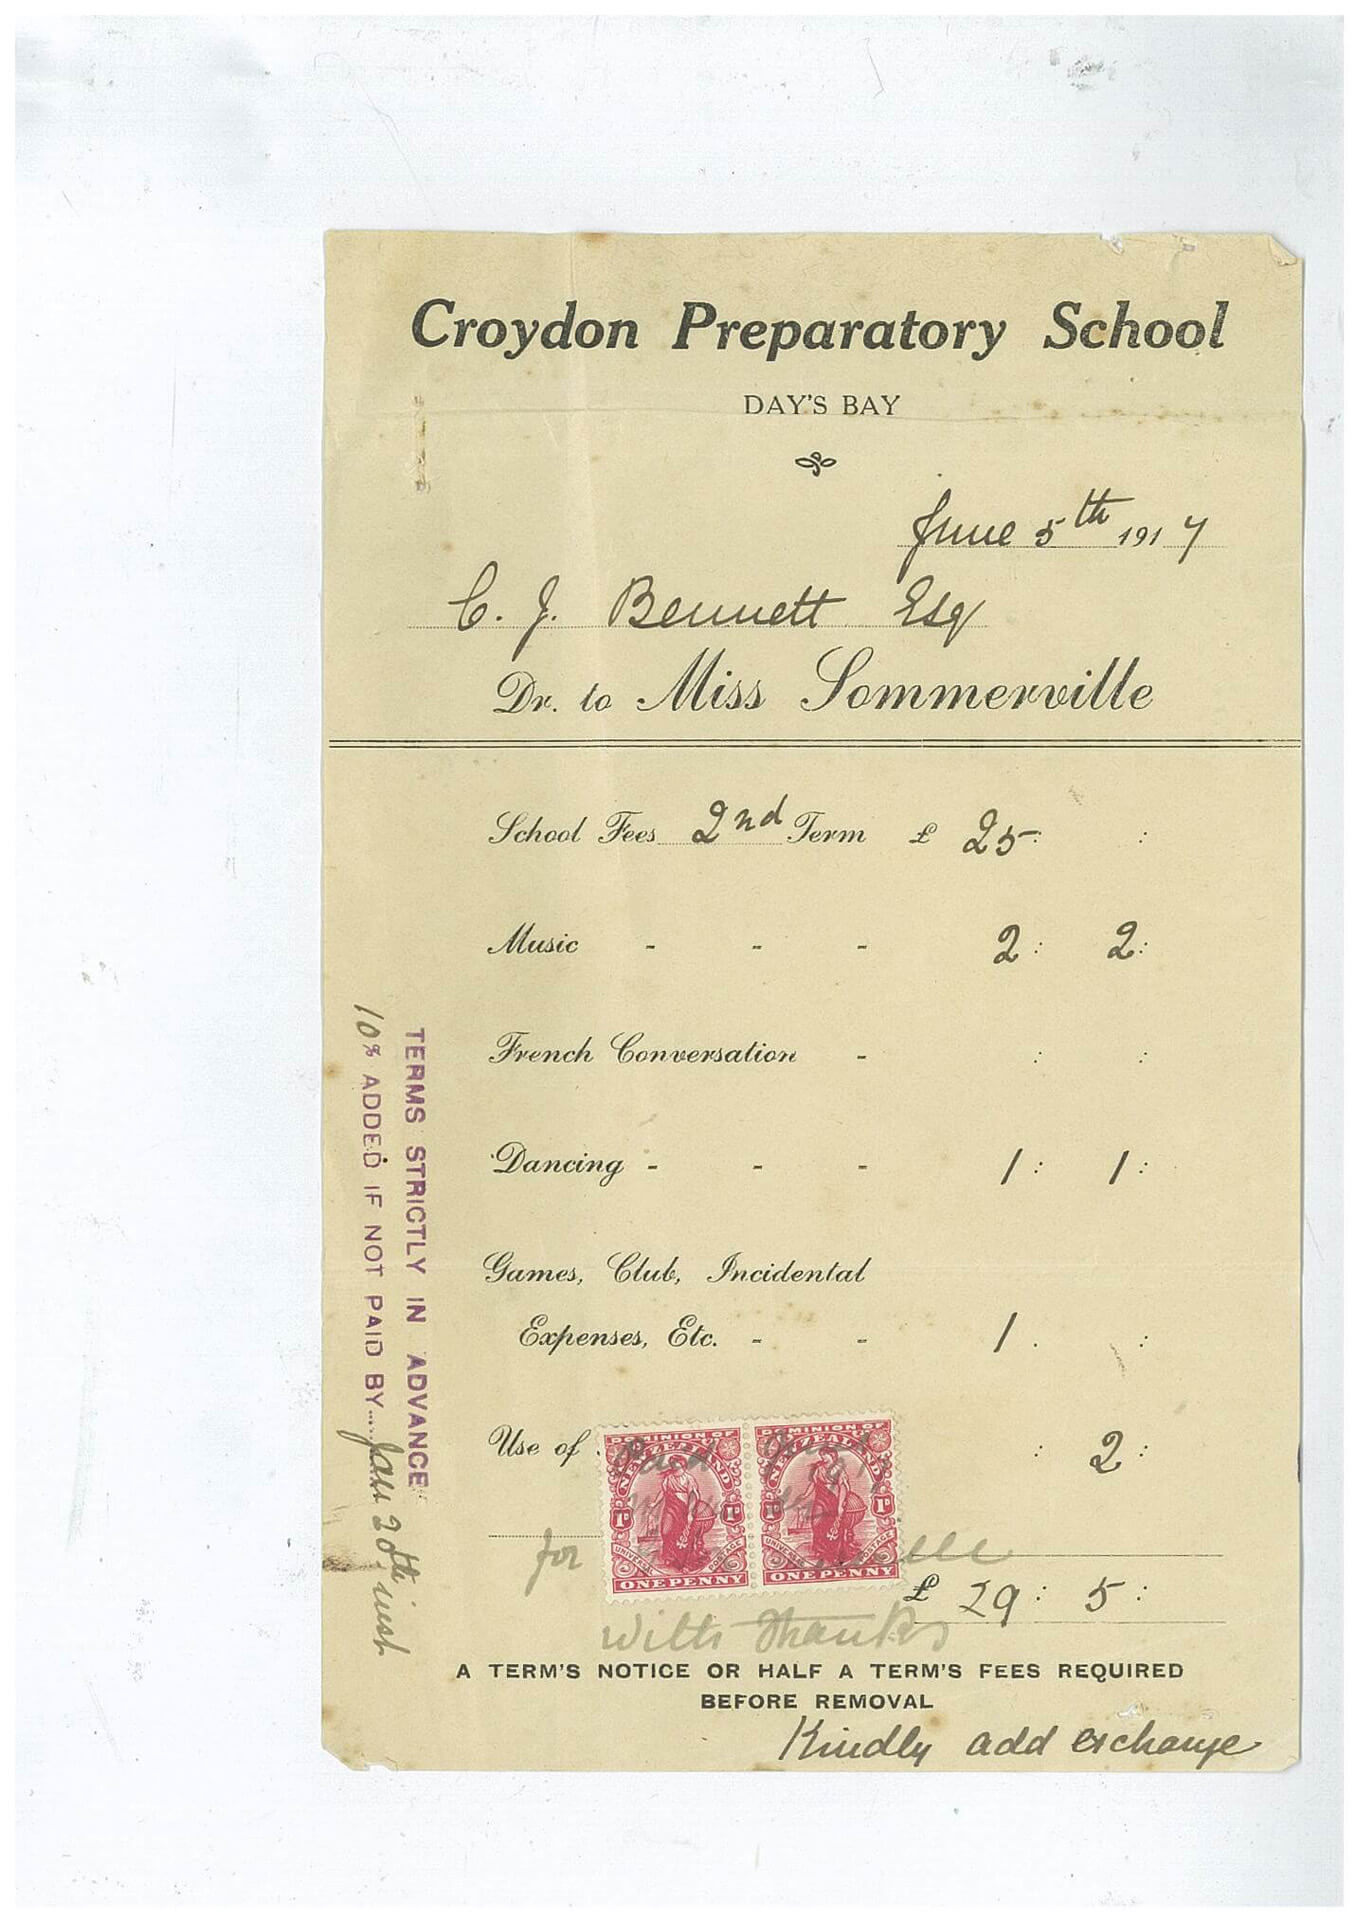 Croydon Preparatory School
DAY'S BAY
June 5th 1917
C. J. Bennett Esq
Dr. to Miss Sommerville
School Fees 2nd Term £ 25 : :
Music - - - 2 : 2 :
French Conversation - : :
Dancing - - - 1 : 1 :
Games, Club, Incidental
Expenses, Etc. - - 1 . :
Use of : 2 :
DOMINION OF NEW ZEALAND
1D 1D
UNIVERSAL POSTAGE
ONE PENNY
DOMINION OF NEW ZEALAND
1D 1D
UNIVERSAL POSTAGE
ONE PENNY
Paid
1917
for
£ 29 : 5 :
With Thanks
A TERM'S NOTICE OR HALF A TERM'S FEES REQUIRED
BEFORE REMOVAL
Kindly add exchange
TERMS STRICTLY IN ADVANCE
10% ADDED IF NOT PAID BY... 20th inst